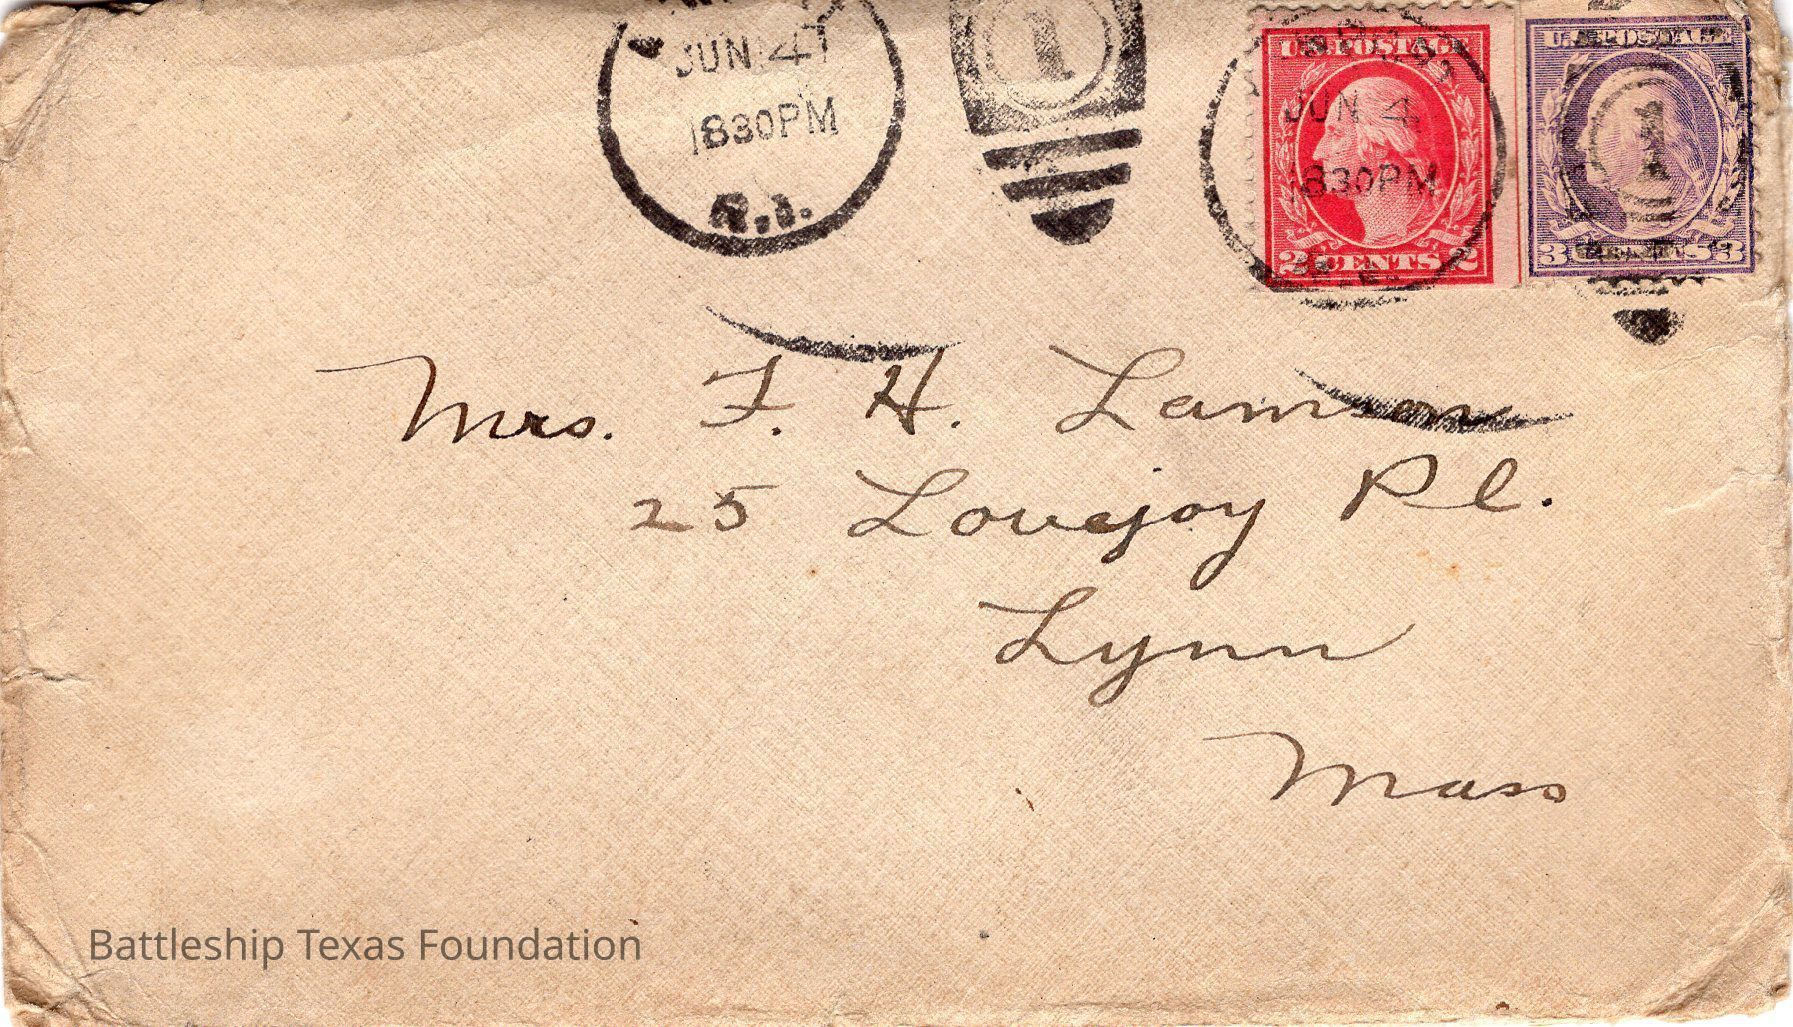 JUN 4
830PM
R.I.
1
U.S. POSTAGE
JUN 4
830PM
2 CENTS 2
U.S. POSTAGE
1
3 CENTS 3
Mrs. F. H. Lamson
25 Lovejoy Pl.
Lynn
Mass
Battleship Texas Foundation